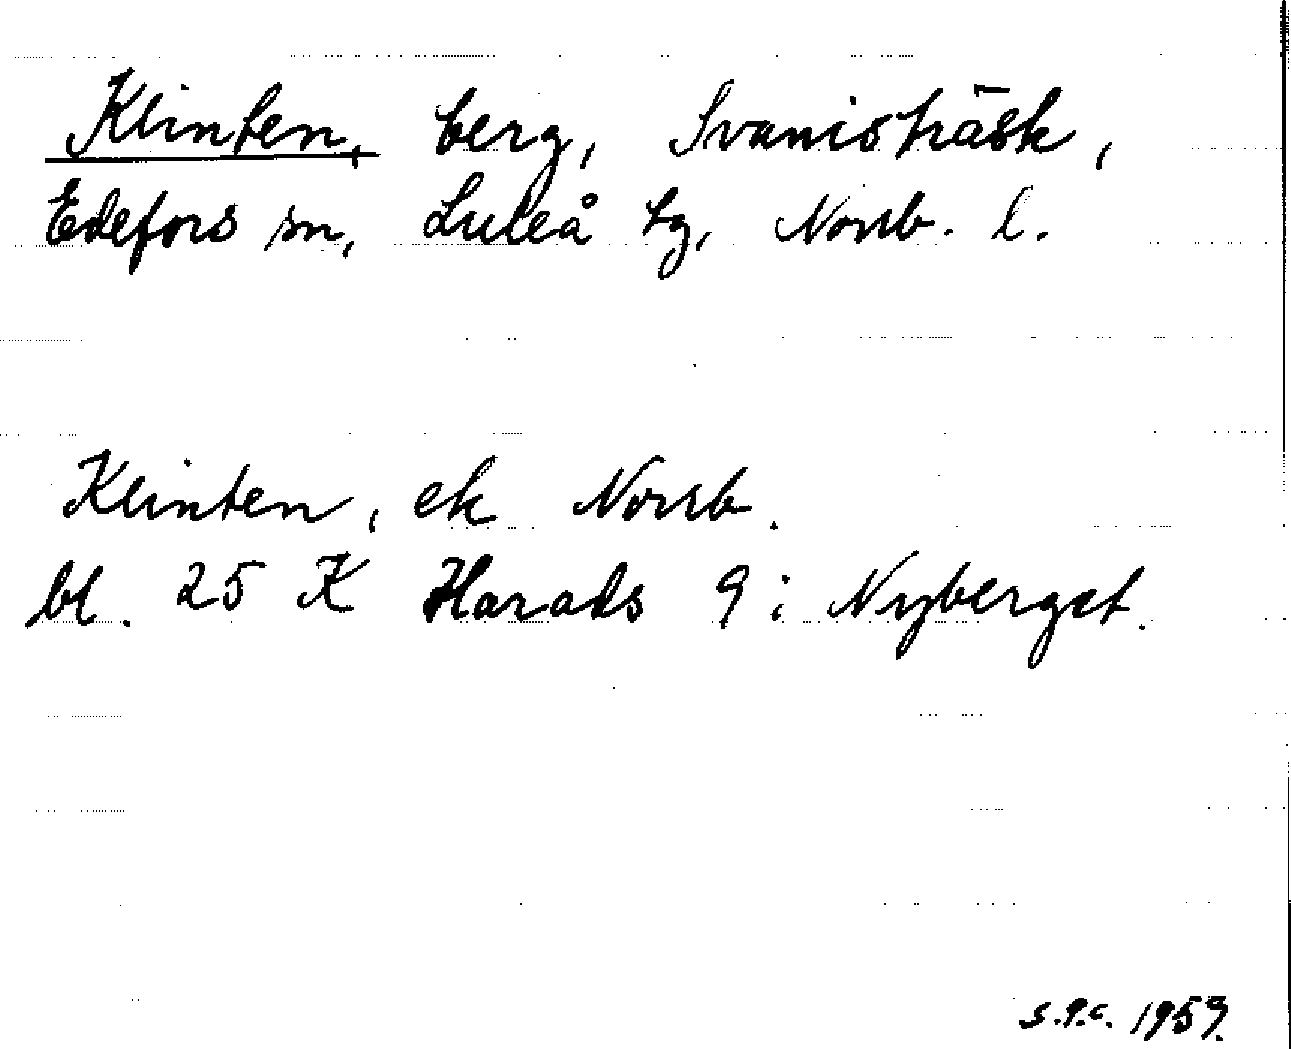 Klinten, berg, Svanisträsk,
Edefors sn, Luleå tg, Norrb. l.
Klinten, ek Norrb.
bl. 25 K Harads 9 i Nyberget.
S.P.C. 1959.